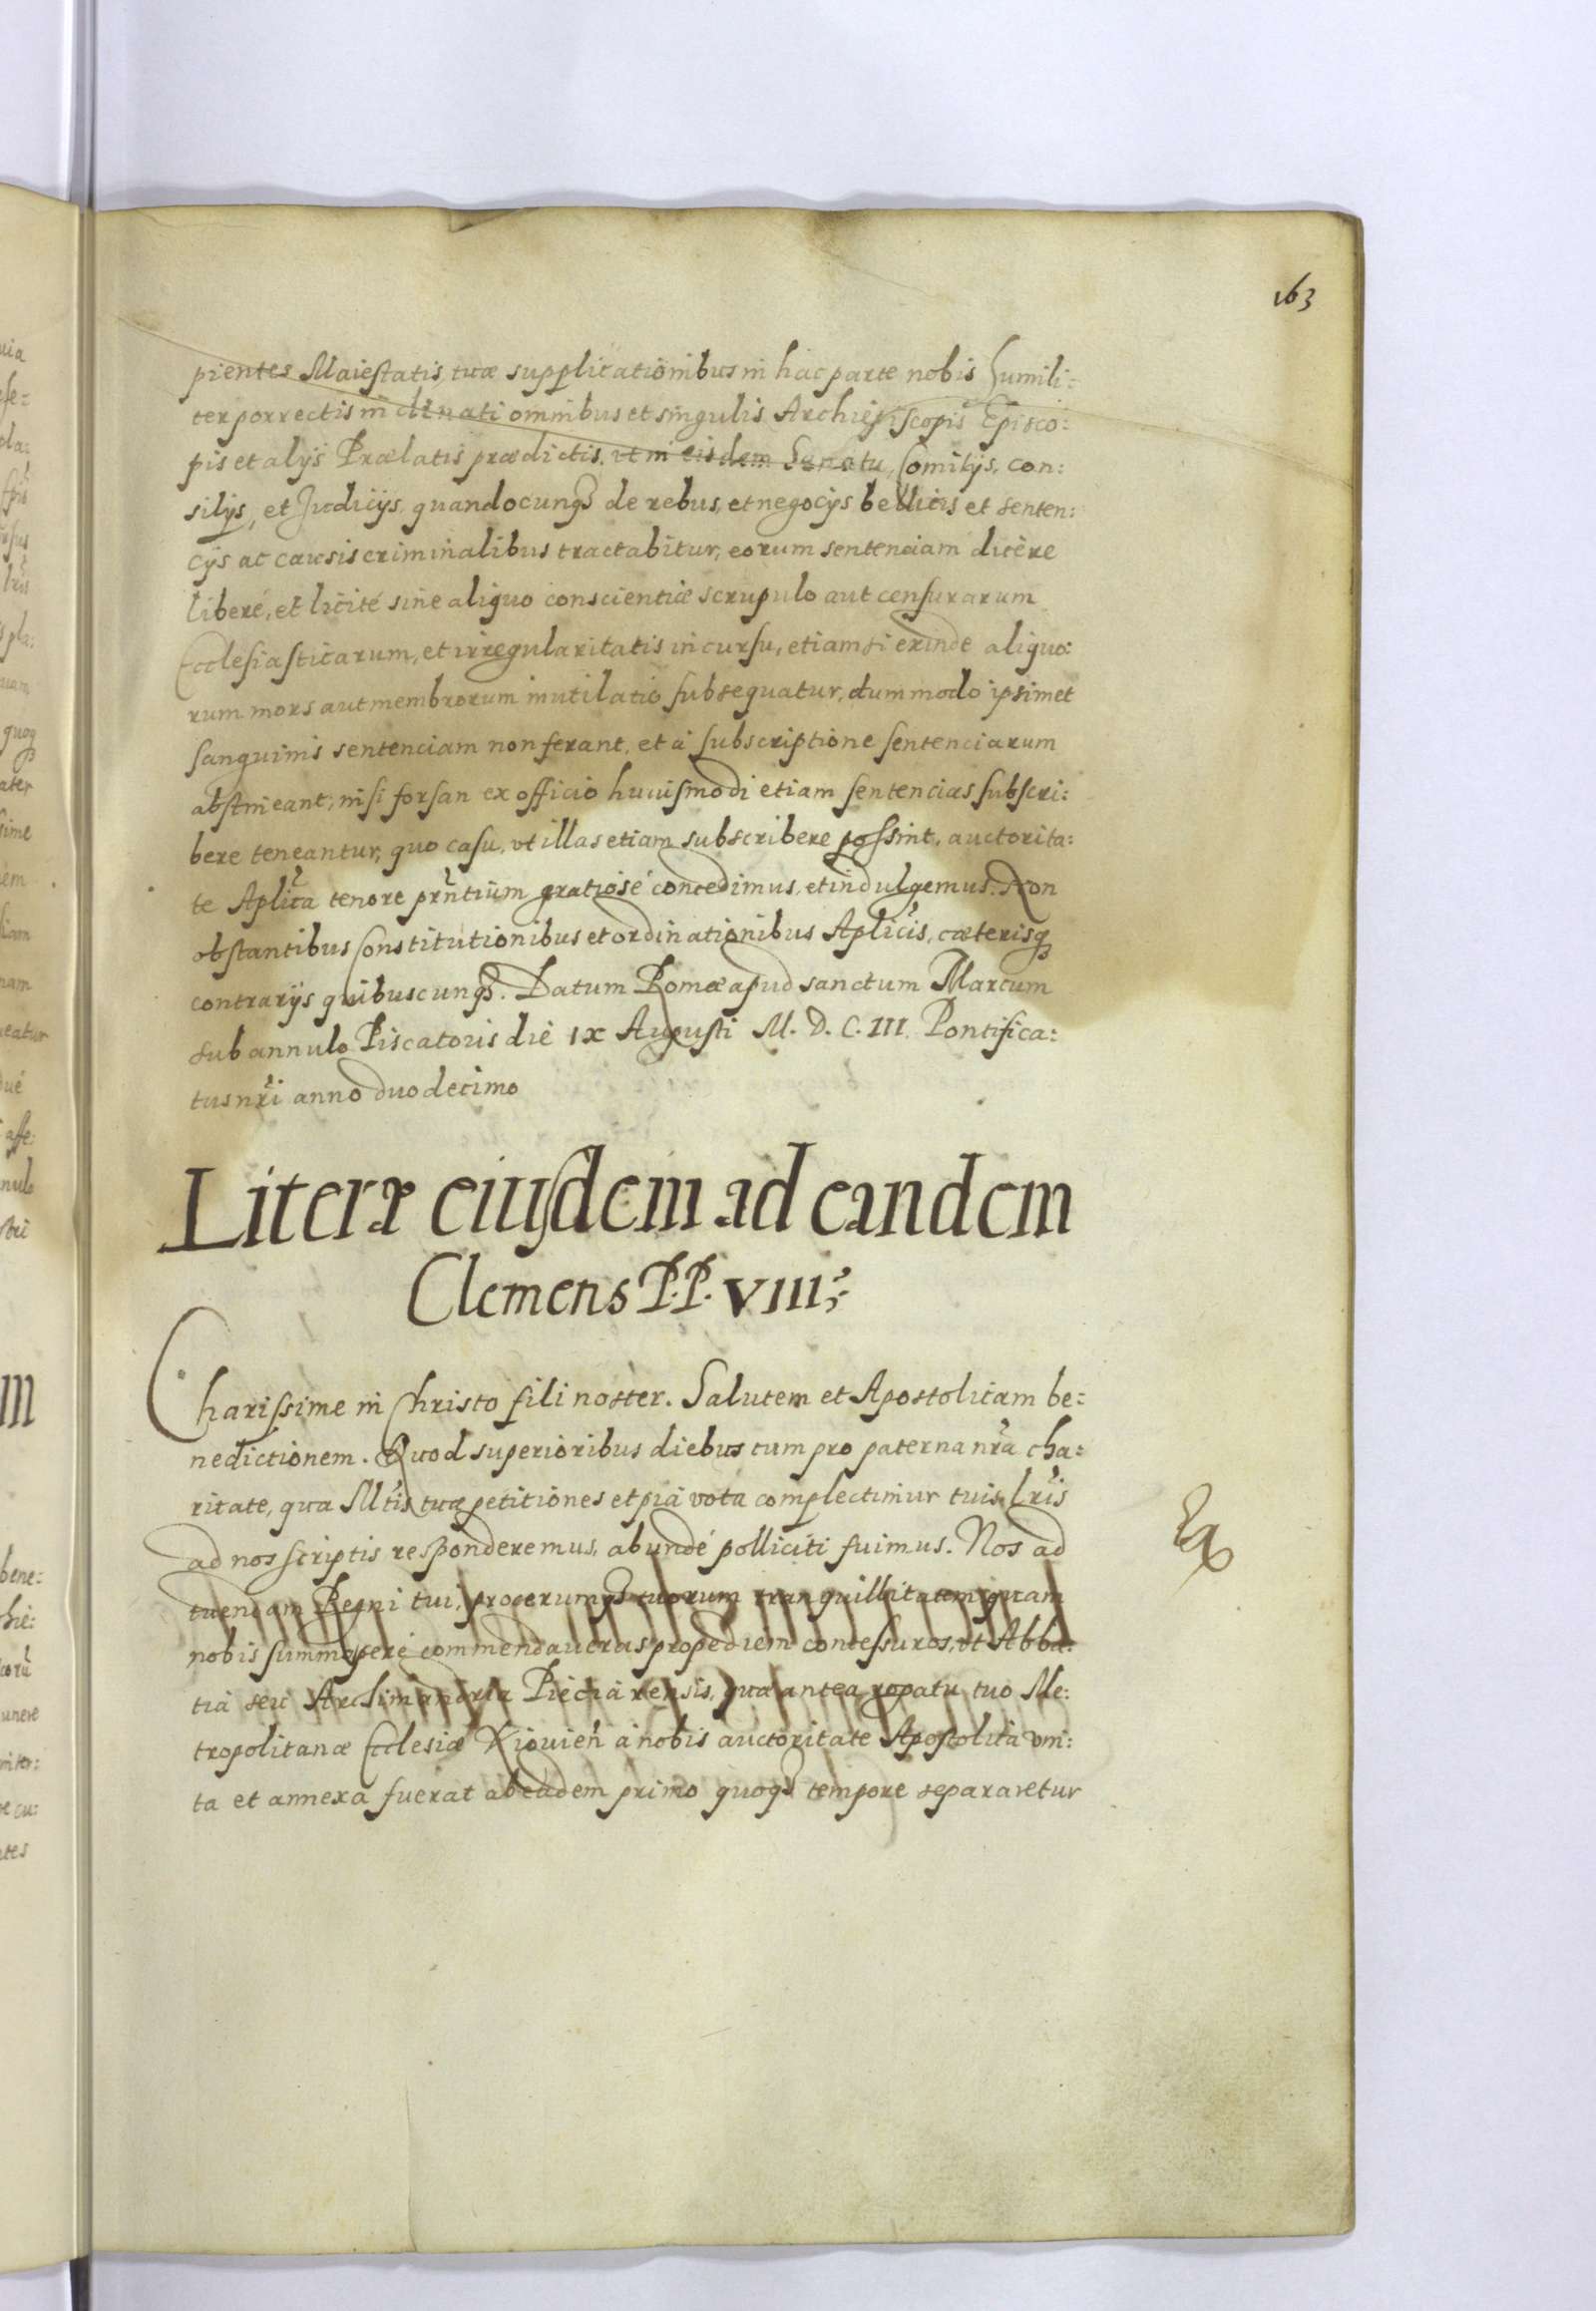 163
pientes Maiestatis tuæ supplicationibus in hac parte nobis humili:
ter porrectis inclinati omnibus et singulis Archiepiscopis Episco:
pis et alijs Prælatis prædictis, vt in eisdem Senatu, Comitijs, con:
silijs, et Judicijs, quandocunqꝫ de rebus, et negocijs bellicis et senten:
cijs ac causis criminalibus tractabitur, eorum sentenciam dicere
liberé, et licité sine aliquo conscientiæ scrupulo aut censurarum
Ecclesiasticarum, et irregularitatis incursu, etiamsi exinde aliquo:
rum mors aut membrorum mutilatio subsequatur, dummodo ipsimet
sanguinis sentenciam non ferant, et à subscriptione sentenciarum
abstineant; nisi forsan ex officio huiusmodi etiam sentencias subscri:
bere teneantur, quo casu, vt illas etiam subscribere possint, auctorita:
te Aplica tenore prntium gratiosé concedimus, et indulgemus. Non
obstantibus Constitutionibus et ordinationibus Aplicis, cæterisqꝫ
contrarijs quibuscunqꝫ. Datum Romæ apud sanctum Marcum
sub annulo Piscatoris die IX Augusti M. D. C. III. Pontifica:
tus nri anno duodecimo
Literæ eiusdem ad eandem
Clemens P.P. VIII.
Charissime in Christo fili noster. Salutem et Apostolicam be:
nedictionem. Quod superioribus diebus cum pro paterna nra cha:
ritate, qua Mtis tuæ petitiones et pia vota complectimur tuis Lris
ad nos scriptis responderemus, abundé polliciti fuimus. Nos ad
tuendam Regni tui, procerumqꝫ tuorum tranquillitatem quam
nobis summoperé commendaueras propediem concessuros, vt Abba:
tia seu Archimandria Pieczarensis, quæ antea rogatu tuo Me:
tropolitanæ Ecclesiæ Kiouien à nobis auctoritate Apostolica vni:
ta et annexa fuerat ab eadem primo quoqꝫ tempore separaretur